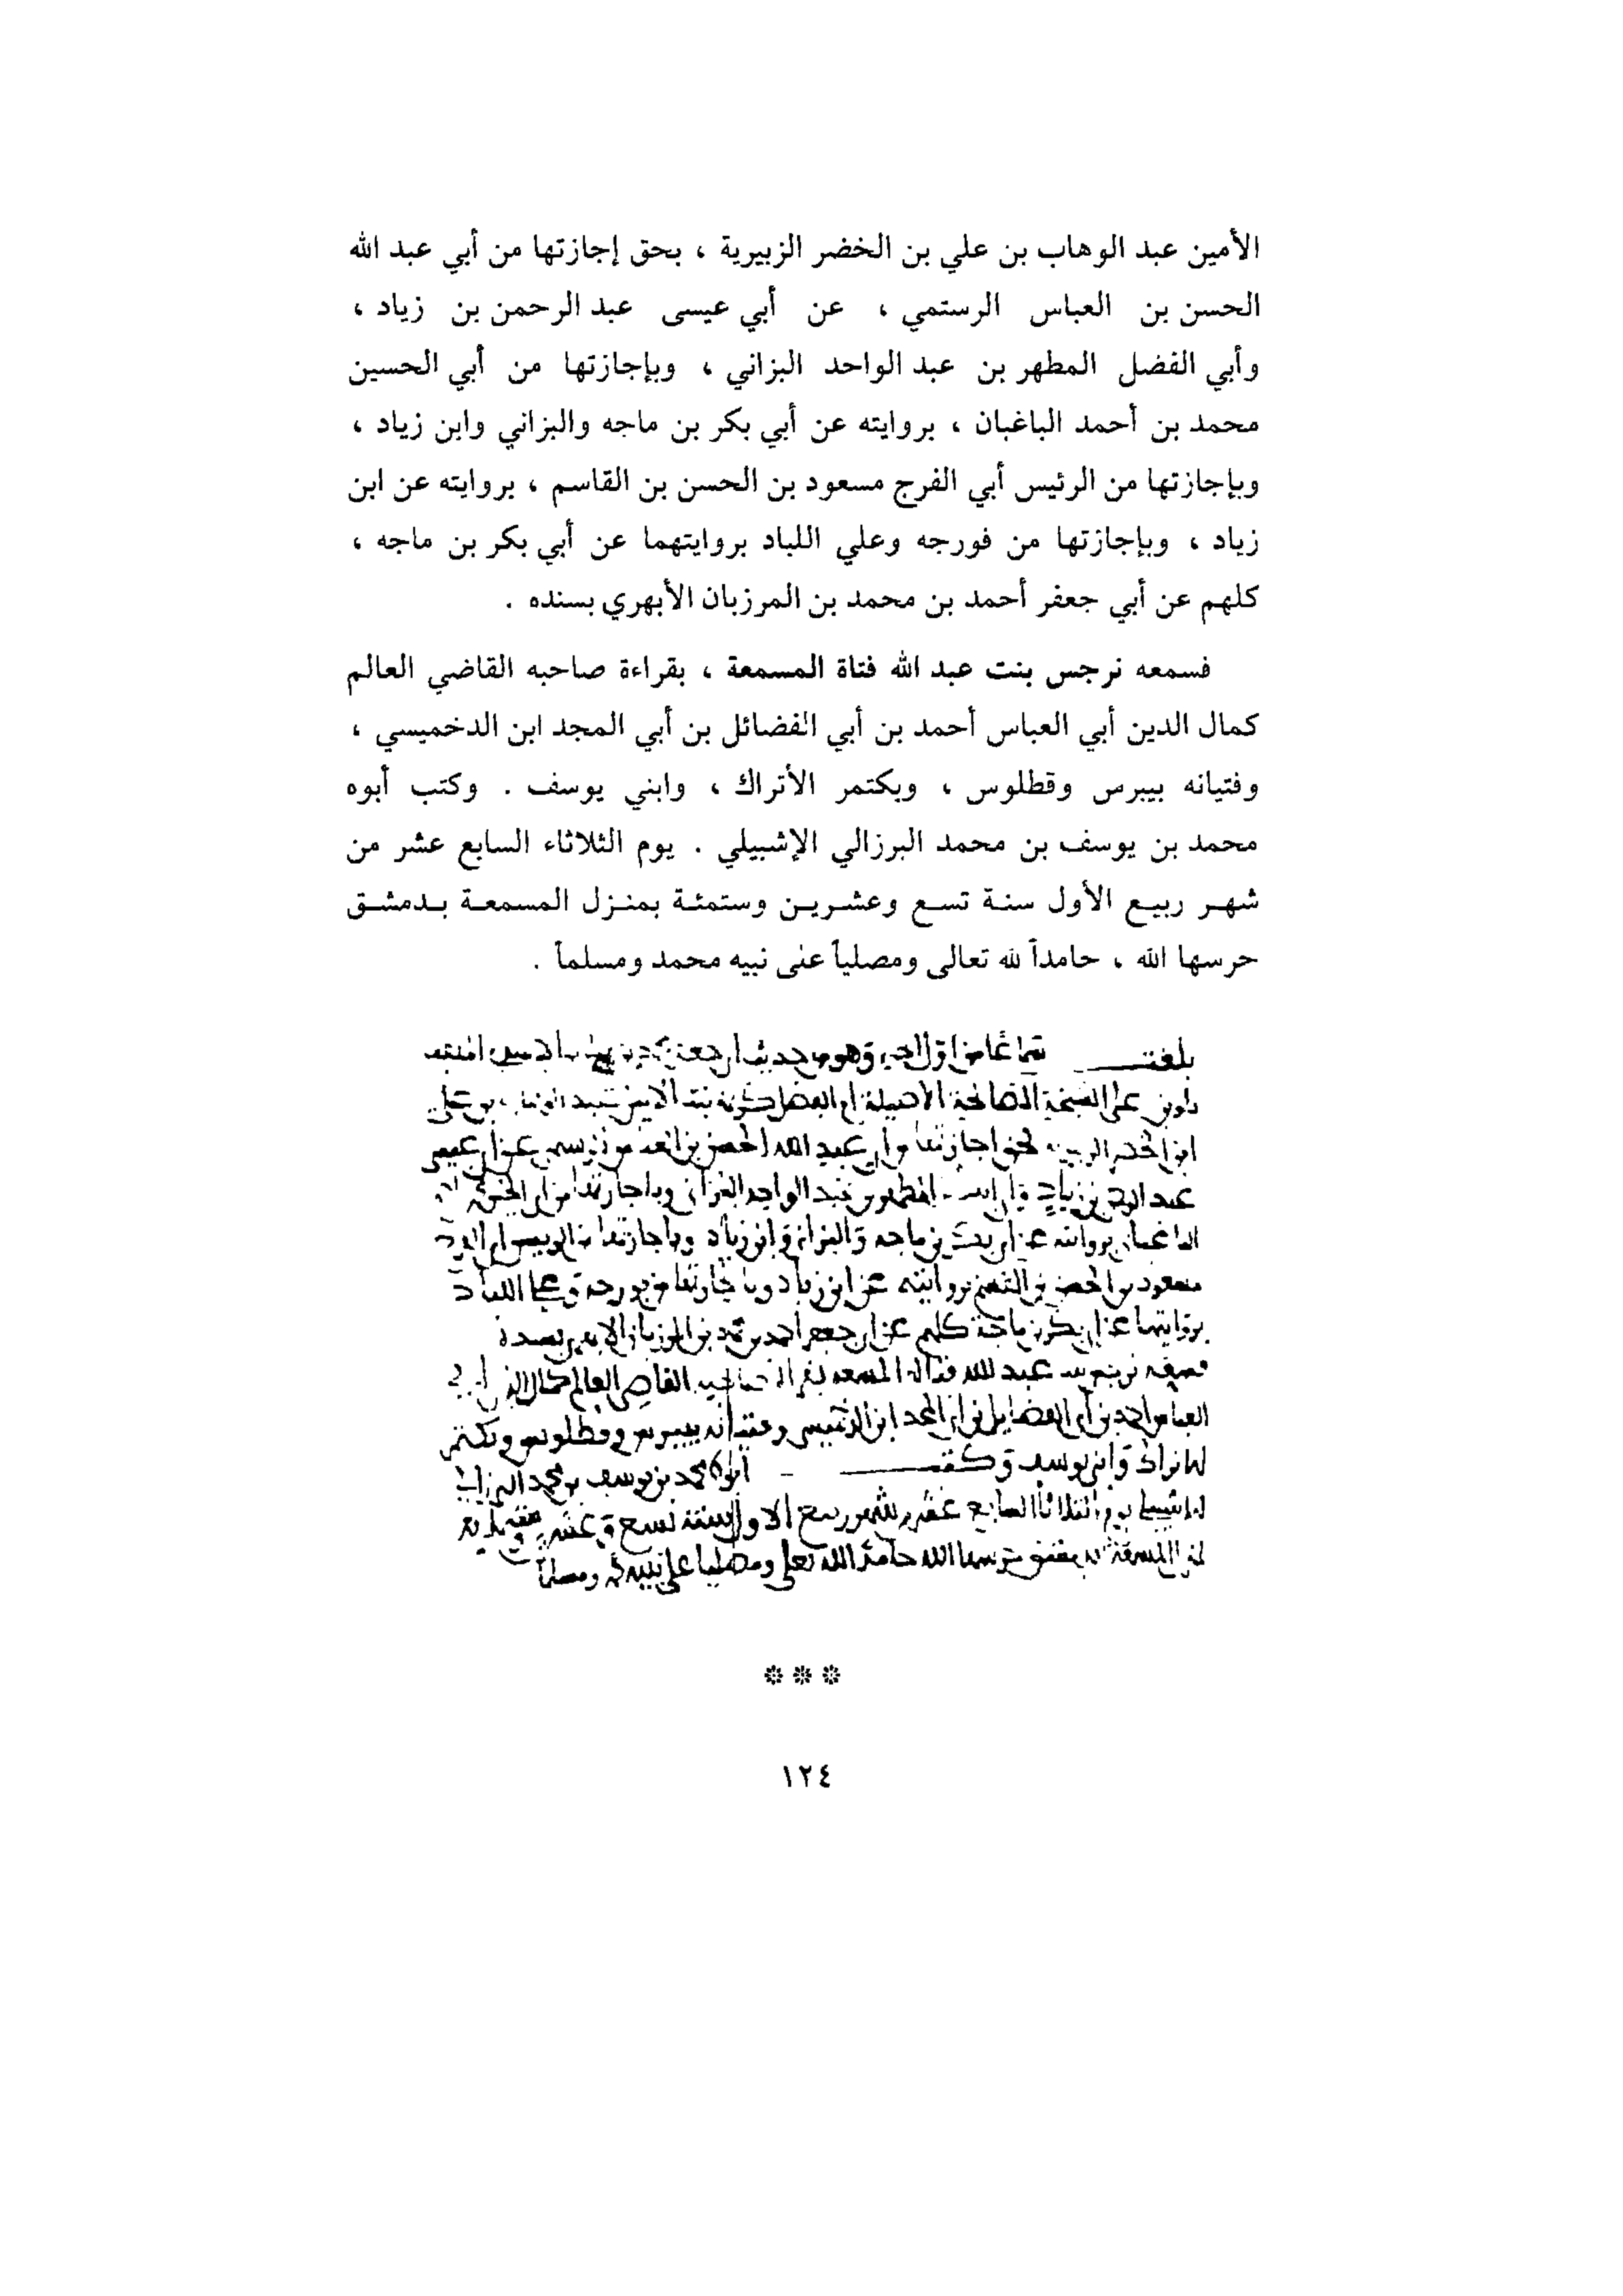 الأمين عبد الوهاب بن علي بن الخضر الزبيرية ، بحق إجازتها من أبي عبد الله
الحسن بن العباس الرستمي ، عن أبي عيسى عبد الرحمن بن زياد ،
وأبي الفضل المطهر بن عبد الواحد البزاني ، وبإجازتها من أبي الحسين
محمد بن أحمد الباغبان ، بروايته عن أبي بكر بن ماجه والبزاني وابن زياد ،
وبإجازتها من الرئيس أبي الفرج مسعود بن الحسن بن القاسم ، بروايته عن ابن
زياد ، وبإجازتها من فورجه وعلي اللباد بروايتهما عن أبي بكر بن ماجه ،
كلهم عن أبي جعفر أحمد بن محمد بن المرزبان الأبهري بسنده .
فسمعه نرجس بنت عبد الله فتاة المسمعة ، بقراءة صاحبه القاضي العالم
كمال الدين أبي العباس أحمد بن أبي الفضائل بن أبي المجد ابن الدخميسي ،
وفتيانه بيبرس وقطلوس ، وبكتمر الأتراك ، وابني يوسف . وكتب أبوه
محمد بن يوسف بن محمد البرزالي الإشبيلي . يوم الثلاثاء السابع عشر من
شهر ربيع الأول سنة تسع وعشرين وستمئة بمنزل المسمعة بدمشق
حرسها الله ، حامداً لله تعالى ومصلياً على نبيه محمد ومسلماً .
بلغت
على الشيخة الصالحة الأصيلة أم الفضل كريمة بنت الأمين عبد الوهاب بن علي
عبد الواحد البزاني وباجازتها من
بروايته عن ابي بكر بن ماجه والبزاني وابن زياد وباجازتها
مسعود بن الحسن بن القسم بروايته عن ابن زياد وباجازتها من فورجه وعلي اللباد
بروايتهما عن ابي بكر بن ماجة كلهم عن ابي جعفر احمد بن محمد بن المرزبان الابهري بسنده
عبد الله فتاة المسمعه القاضي العالم كمال الدين ابي
العباس احمد بن ابي الفضايل بن ابي المجد ابن وفتيانه بيبرس وقطلوس وبكتمر
وابني يوسف وكتب ابوه محمد بن يوسف بن محمد البرزالي
يوم الثلاثا السابع عشر شهر ربيع الاول سنة تسع وعشرين
بدمشق حرسها الله حامدا لله تعلى ومصليا على نبيه محمد ومسلما
***
١٢٤